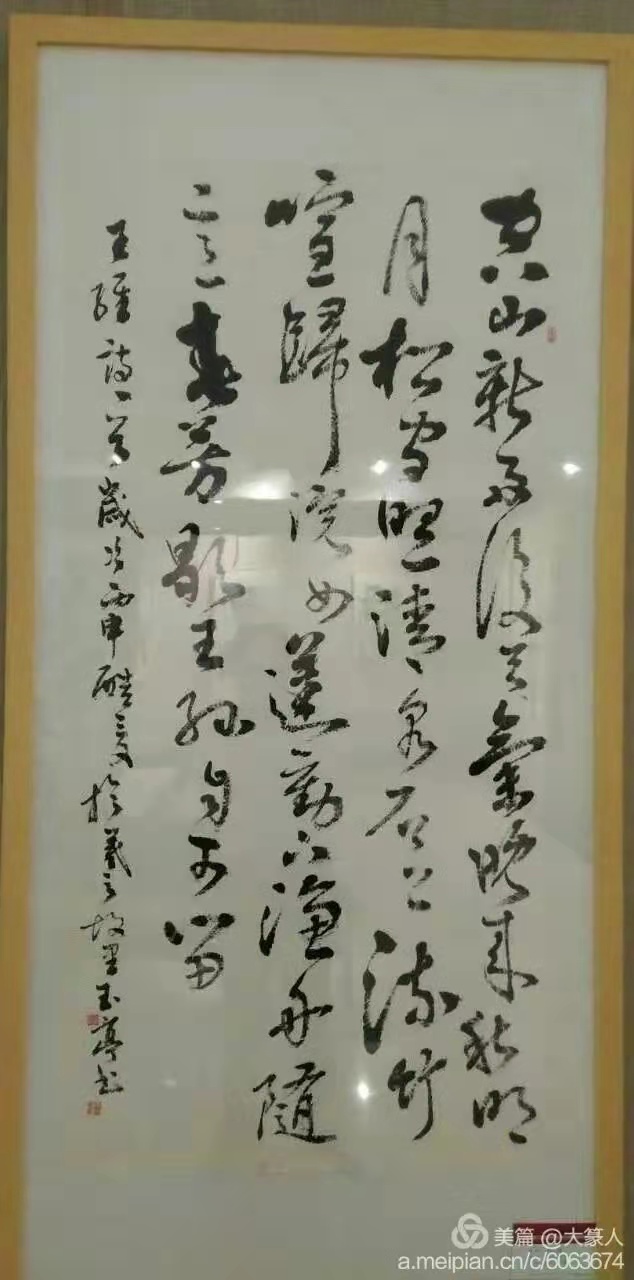 空山新雨後天氣晚來秋明
月松間照清泉石上流竹
喧歸浣女蓮動下漁舟隨
意春芳歇王孫自可留
王維詩一首歲次丙申酷夏於羲之故里玉亭书
美篇 @大篆人
a.meipian.cn/c/6063674